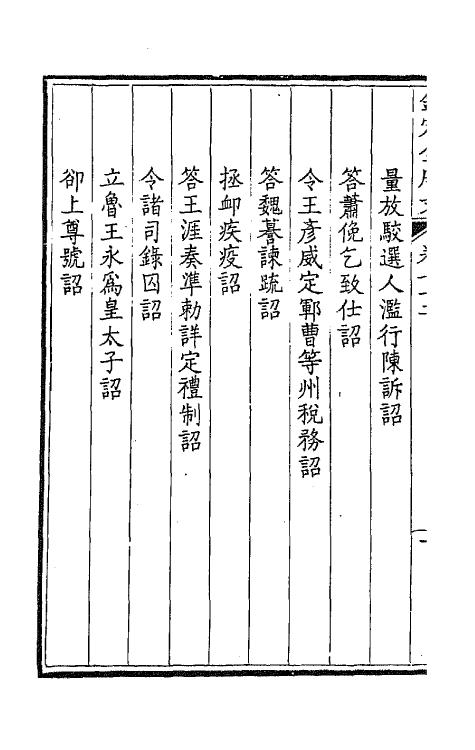 量放駮選人濫行陳訴詔
答蕭俛乞致仕詔
令王彥威定鄆曹等州稅務詔
答魏謩諫疏詔
拯卹疾疫詔
答王涯奏準勅詳定禮制詔
令諸司錄囚詔
立魯王永為皇太子詔
卻上尊號詔